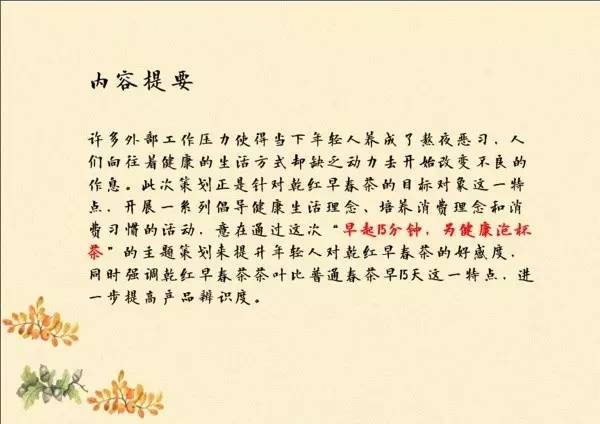 内容提要
许多外部工作压力使得当下年轻人养成了熬夜恶习，人
们向往着健康的生活方式却缺乏动力去开始改变不良的
作息。此次策划正是针对乾红早春茶的目标对象这一特
点，开展一系列倡导健康生活理念、培养消费理念和消
费习惯的活动，意在通过这次“早起15分钟，为健康泡杯
茶”的主题策划来提升年轻人对乾红早春茶的好感度，
同时强调乾红早春茶茶叶比普通春茶早15天这一特点，进
一步提高产品辨识度。